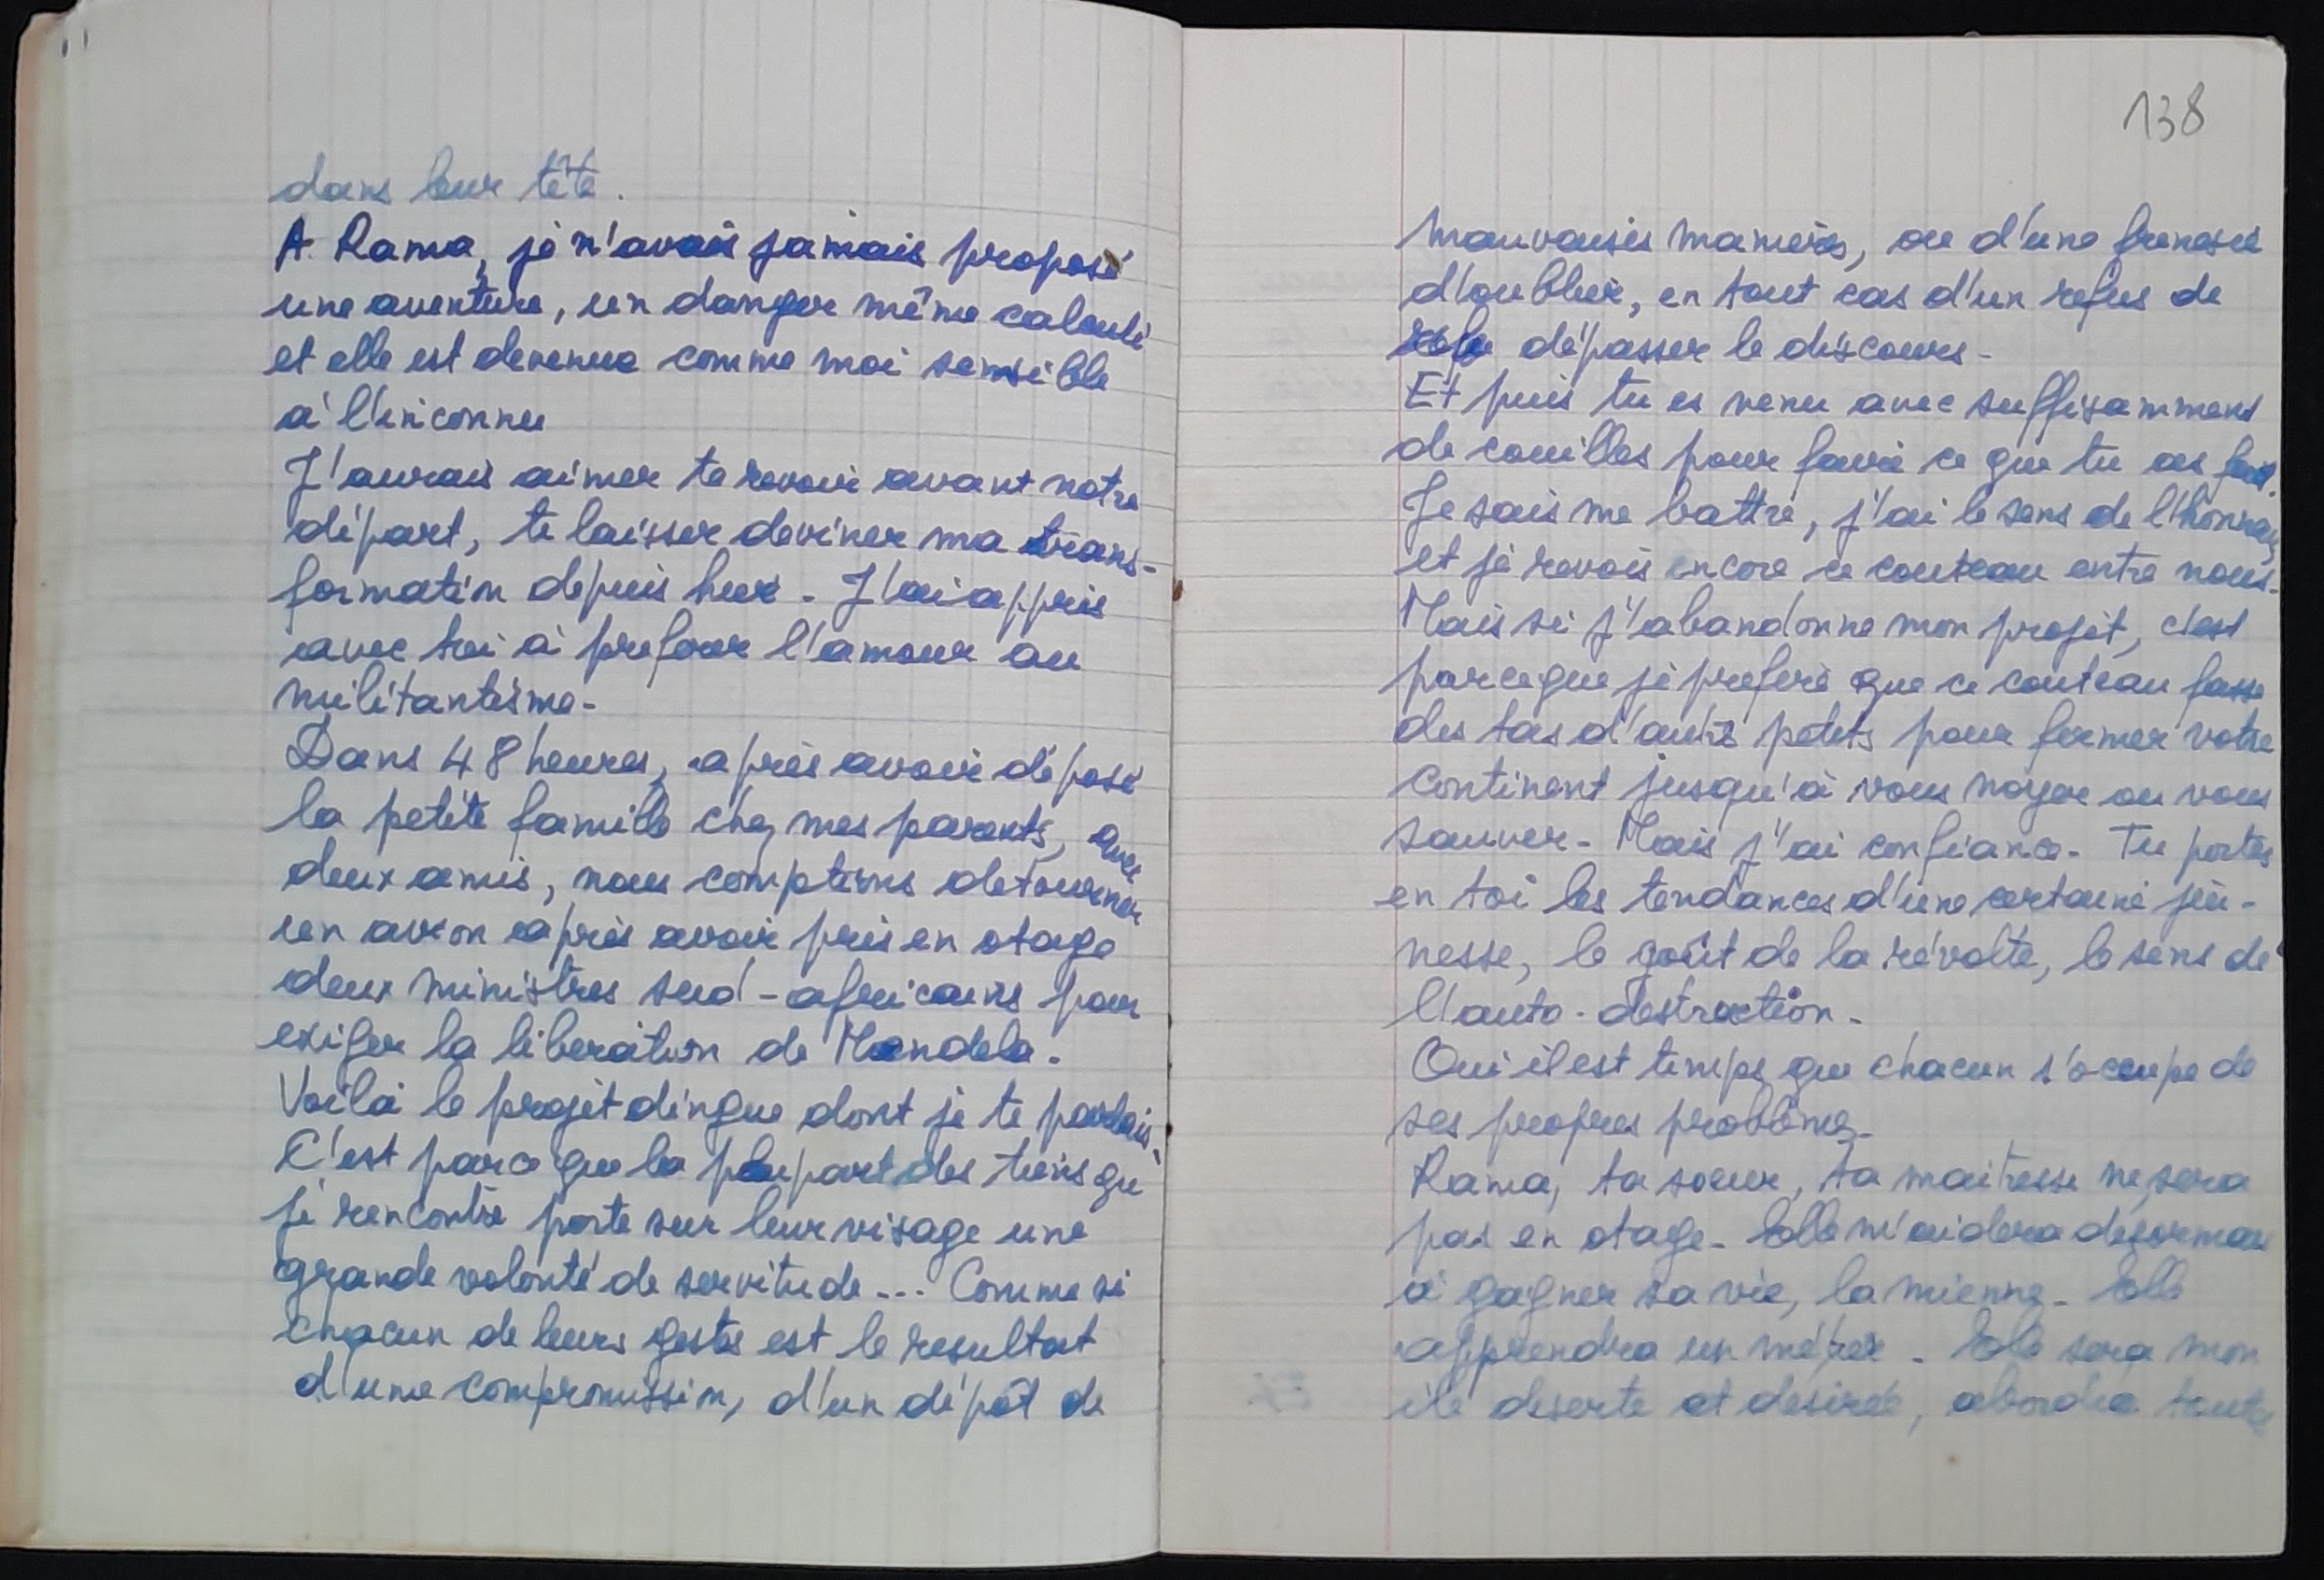 dans leur tête.
A Rama, je n'avais jamais proposé
une aventure, un danger même calculé
et elle est devenue comme moi sensible
à l'inconnu
J'aurais aimer te revoir avant notre
départ, te laisser deviner ma trans-
formation depuis hier - J'ai appris
avec toi à preferer l'amour au
militantisme -
Dans 48 heures, après avoir déposé
la petite famille chez mes parents, avec
deux amis, nous comptions detourner
un avion après avoir pris en otage
deux ministres sud-africains pour
exiger la liberation de Mandela -
Voilà le projet dingue dont je te parlais -
C'est parce que la plupart des tiens que
je rencontre porte sur leur visage une
grande volonté de servitude --- Comme si
chacun de leurs gestes est le resultat
d'une compromission, d'un dépôt de
138
mauvaises manières, ou d'une frenesie
d'oublier, en tout cas d'un refus de
dépasser le discours -
Et puis tu es venu avec suffisamment
de couilles pour faire ce que tu as fait.
Je sais me battre, j'ai le sens de l'honneur
et je revois encore ce couteau entre nous -
Mais si j'abandonne mon projet, c'est
parceque je prefere que ce couteau fasse
des tas d'autres petits pour fermer votre
continent jusqu'à vous noyer ou vous
sauver - Mais j'ai confiance - Tu portes
en toi les tendances d'une certaine jeu-
nesse, le goût de la révolte, le sens de
l'auto-destruction -
Oui il est temps que chacun s'occupe de
ses propres problèmes -
Rama, ta soeur, ta maitresse ne sera
pas en otage - Elle m'aidera desormais
à gagner sa vie, la mienne - Elle
apprendra un métier - Elle sera mon
île deserte et desirée, toute